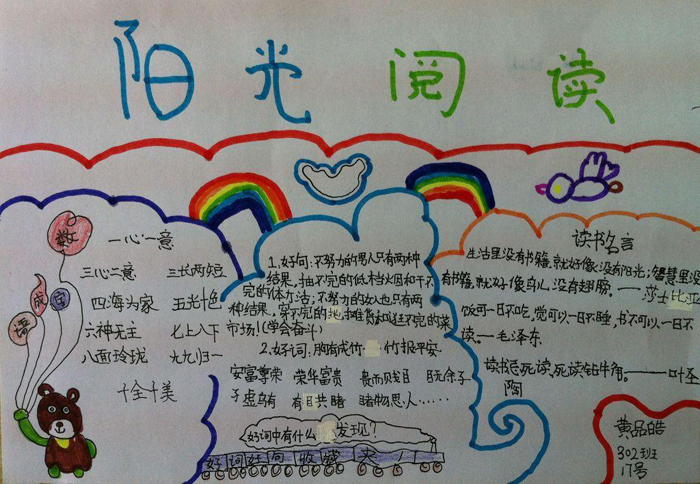 阳光阅读
数
字
成
语
一心一意
三心二意 三长两短
四海为家 五光十色
六神无主 七上八下
八面玲珑 九九归一
十全十美
1.好句:不努力的男人只有两种
结果,抽不完的低档烟和干不
完的体力活;不努力的女人也只有两
种结果,穿不完的地摊货和逛不完的菜
市场!(学会奋斗)
2.好词:胸有成竹 竹报平安
安富尊荣 荣华富贵 贵而贱目 目无余子
子虚乌有 有目共睹 睹物思人……
好词中有什么发现?
好词好句收藏夹!
读书名言
生活里没有书籍,就好像没有阳光;智慧里没
有书籍,就好像鸟儿没有翅膀。——莎士比亚
饭可一日不吃,觉可以一日不睡,书不可以一日不
读。——毛泽东
读书忌死读,死读钻牛角。——叶圣
陶
黄品皓
302班
17号